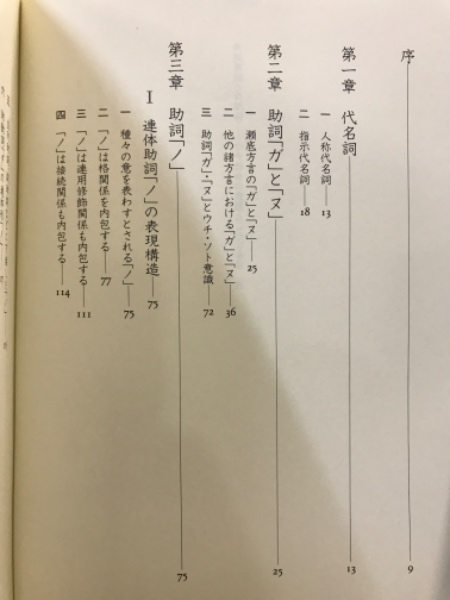 序――9
第一章　代名詞――13
一　人称代名詞――13
二　指示代名詞――18
第二章　助詞「ガ」と「ヌ」――25
一　瀬底方言の「ガ」と「ヌ」――25
二　他の諸方言における「ガ」と「ヌ」――36
三　助詞「ガ」・「ヌ」とウチ・ソト意識――72
第三章　助詞「ノ」――75
Ⅰ　連体助詞「ノ」の表現構造――75
一　種々の意を表わすとされる「ノ」――75
二　「ノ」は格関係を内包する――77
三　「ノ」は連用修飾関係も内包する――111
四　「ノ」は接続関係も内包する――114